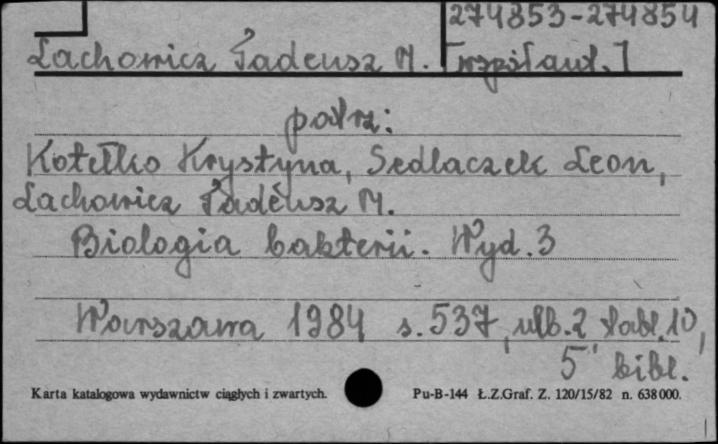 274853-274854
Lachowicz Tadeusz M. [współaut.]
patrz:
Kotełko Krystyna, Sedlaczek Leon,
Lachowicz Tadeusz M.
Biologia bakterii. Wyd. 3
Warszawa 1984 s. 537, ulb. 2 tabl. 10,
5 bibl.
Karta katalogowa wydawnictw ciągłych i zwartych.
Pu-B-144 Ł.Z.Graf. Z. 120/15/82 n. 638000.